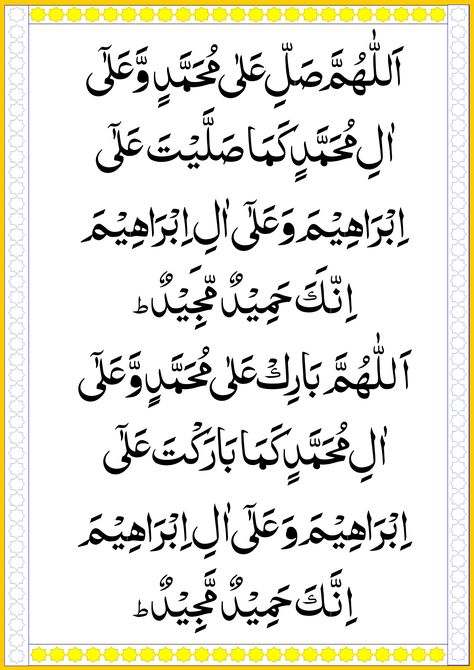 اَللّٰهُمَّ صَلِّ عَلٰى مُحَمَّدٍ وَّعَلٰٓى
اٰلِ مُحَمَّدٍ كَمَا صَلَّيْتَ عَلٰٓى
اِبْرَاهِيْمَ وَعَلٰٓى اٰلِ اِبْرَاهِيْمَ
اِنَّكَ حَمِيْدٌ مَّجِيْدٌ ؕ
اَللّٰهُمَّ بَارِكْ عَلٰى مُحَمَّدٍ وَّعَلٰٓى
اٰلِ مُحَمَّدٍ كَمَا بَارَكْتَ عَلٰٓى
اِبْرَاهِيْمَ وَعَلٰٓى اٰلِ اِبْرَاهِيْمَ
اِنَّكَ حَمِيْدٌ مَّجِيْدٌ ؕ